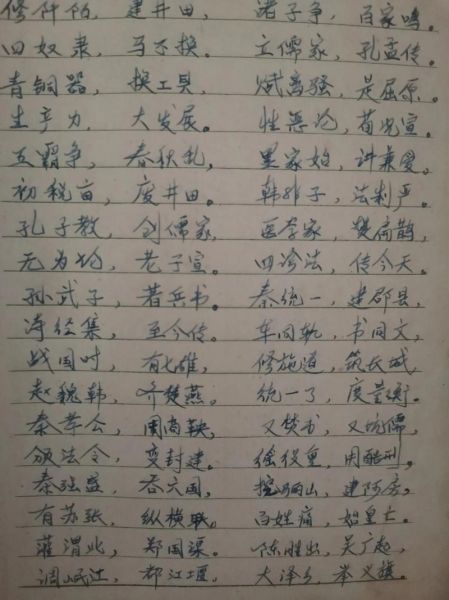 修阡陌，建井田，
四奴隶，马不换。
青铜器，换工具，
生产力，大发展。
五霸争，春秋乱，
初税亩，废井田。
孔子教，创儒家，
无为论，老子宣。
孙武子，著兵书。
诗经集，至今传。
战国时，有七雄，
赵魏韩，齐楚燕，
秦孝公，用商鞅，
颁法令，变封建。
秦强盛，吞六国，
有苏张，纵横联。
灌渭北，郑国渠。
调岷江，都江堰。
诸子争，百家鸣。
立儒家，孔孟传。
赋离骚，是屈原。
性恶论，荀况宣。
墨家始，讲兼爱。
韩非子，法制严。
医学家，樊扁鹊，
四诊法，传今天。
秦统一，建郡县，
车同轨，书同文，
修驰道，筑长城，
统一了，度量衡。
又焚书，又坑儒，
徭役重，用酷刑。
挖骊山，建阿房，
百姓痛，始皇亡。
陈胜出，吴广起，
大泽乡，举义旗。